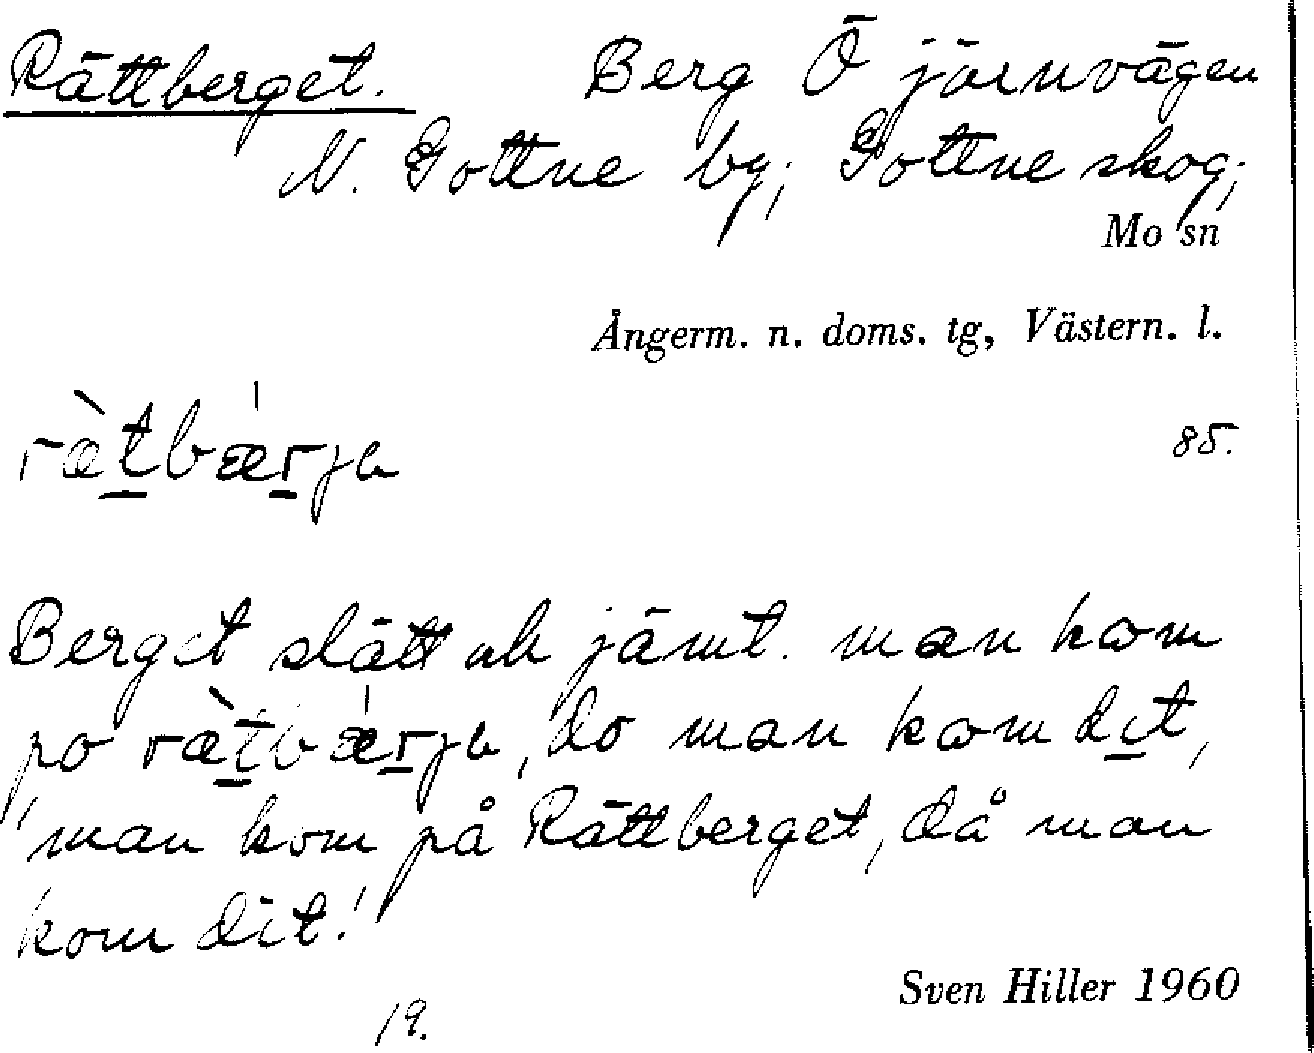 Rättberget. Berg Ö järnvägen
N. Gottne by; Gottne skog;
Mo sn
Ångerm. n. doms. tg, Västern. l.
ræ̀t̲bǽr̲ja
85.
Berget slätt ok jämt. man kom
po ræ̀t̲bǽr̲ja, do man kom di̲t,
'man kom på Rättberget, då man
kom dit!'
Sven Hiller 1960
19.